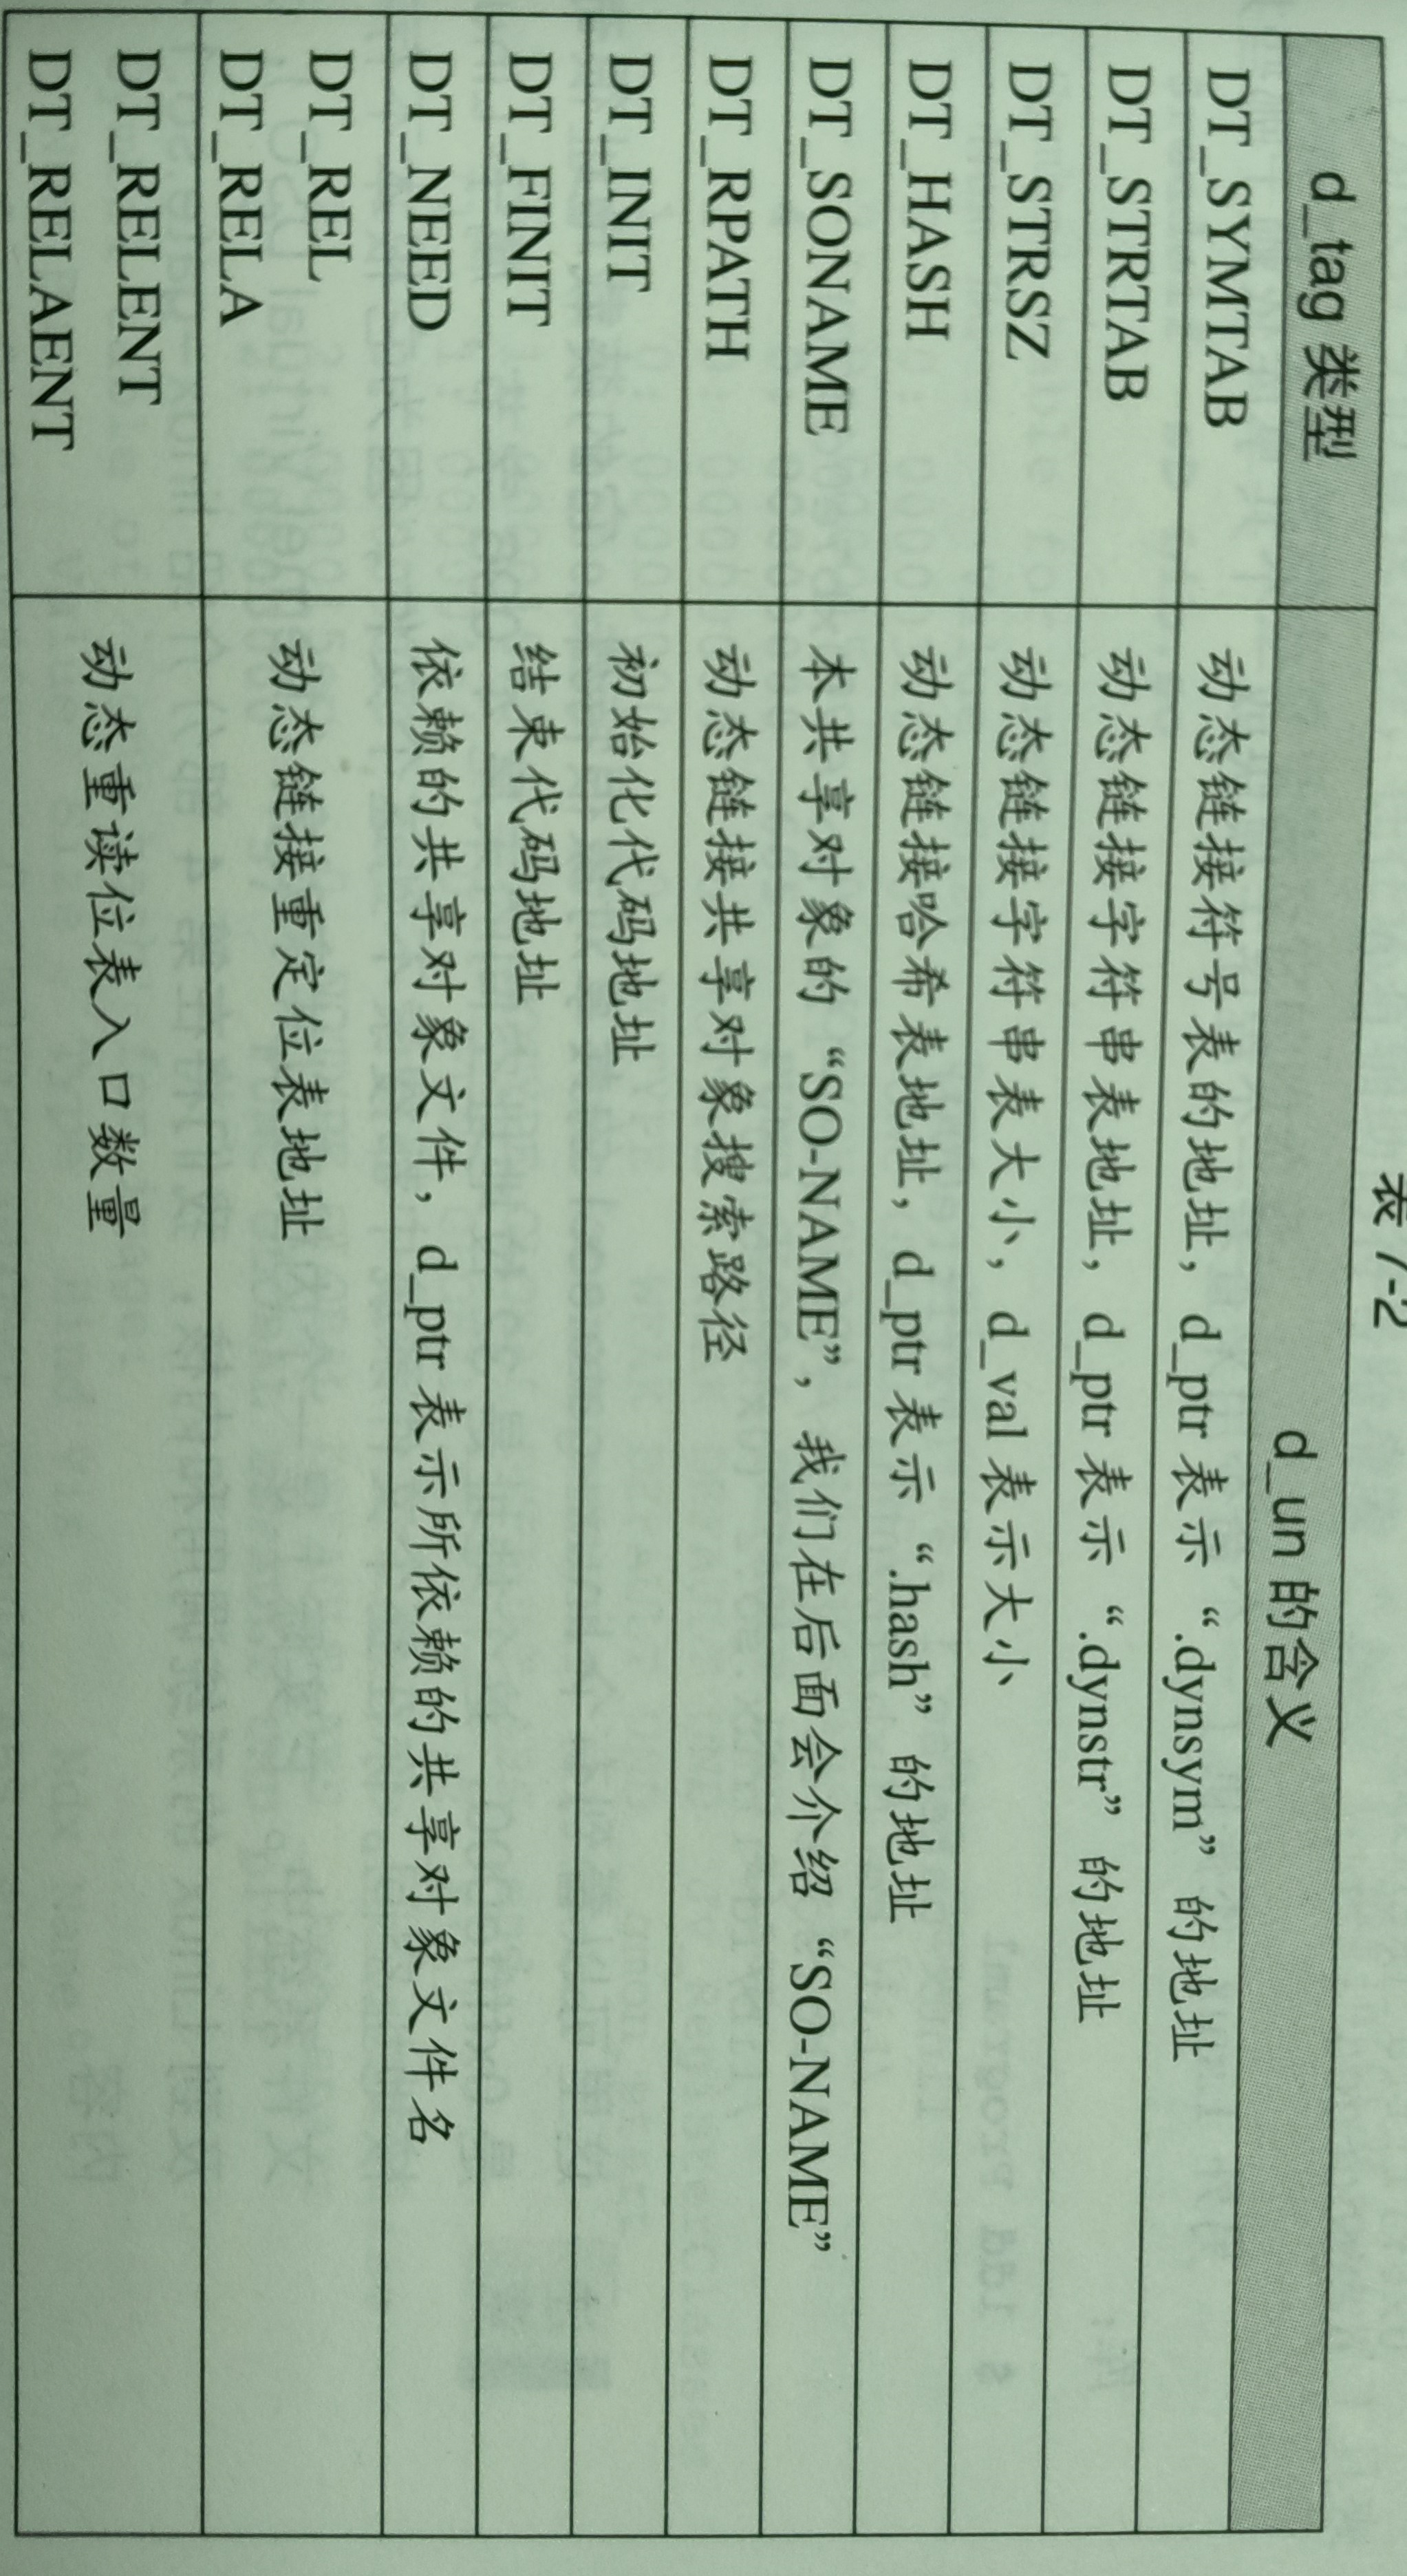 表 7-2
d_tag 类型 d_un 的含义
DT_SYMTAB 动态链接符号表的地址，d_ptr 表示“.dynsym”的地址
DT_STRTAB 动态链接字符串表地址，d_ptr 表示“.dynstr”的地址
DT_STRSZ 动态链接字符串表大小，d_val 表示大小
DT_HASH 动态链接哈希表地址，d_ptr 表示“.hash”的地址
DT_SONAME 本共享对象的“SO-NAME”，我们在后面会介绍“SO-NAME”
DT_RPATH 动态链接共享对象搜索路径
DT_INIT 初始化代码地址
DT_FINIT 结束代码地址
DT_NEED 依赖的共享对象文件，d_ptr 表示所依赖的共享对象文件名
DT_REL
动态链接重定位表地址
DT_RELA
DT_RELENT
动态重读位表入口数量
DT_RELAENT